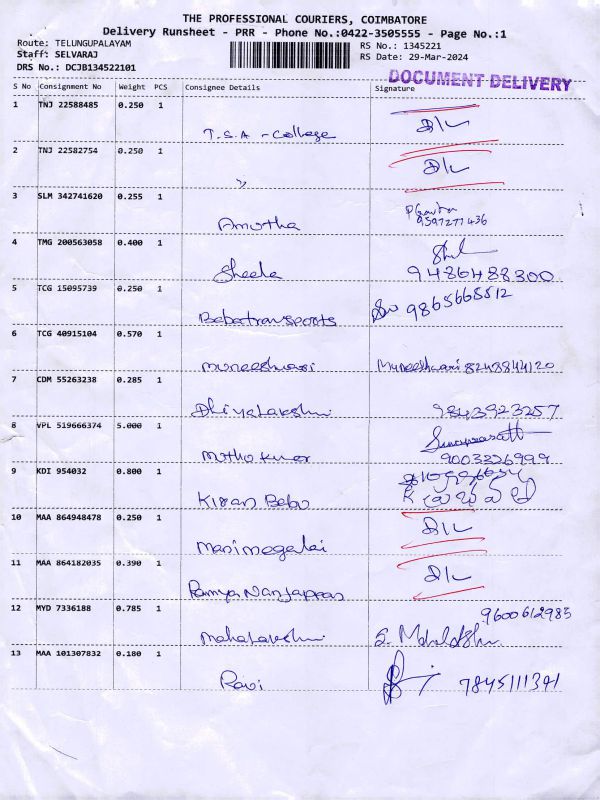 THE PROFESSIONAL COURIERS, COIMBATORE
Delivery Runsheet - PRR - Phone No.:0422-3505555 - Page No.:1
Route: TELUNGUPALAYAM
RS No.: 1345221
Staff: SELVARAJ
RS Date: 29-Mar-2024
DRS No.: DCJB134522101
DOCUMENT DELIVERY
S No Consignment No Weight PCS Consignee Details Signature
1 TNJ 22588485 0.250 1
T.S.A - College D/L
2 TNJ 22582754 0.250 1
" D/L
3 SLM 342741620 0.255 1
Amutha 9597277436
4 TMG 200563058 0.400 1
Sheela 9486488300
5 TCG 15095739 0.250 1
Babatransports 9865665512
6 TCG 40915104 0.570 1
Muneeshwari Muneeshwari 8248844120
7 CDM 55263238 0.285 1
Dhiyalakshmi 9843923257
8 VPL 519666374 5.000 1
Muthokumar 9003226999
9 KDI 954032 0.800 1
Kiran Babu
10 MAA 864948478 0.250 1
Manimegalai D/L
11 MAA 864182035 0.390 1
Ramya Nanjappan D/L
12 MYD 7336188 0.785 1
9600612983
Mahalakshmi S. Mahalakshmi
13 MAA 101307832 0.180 1
Ravi 7845111391